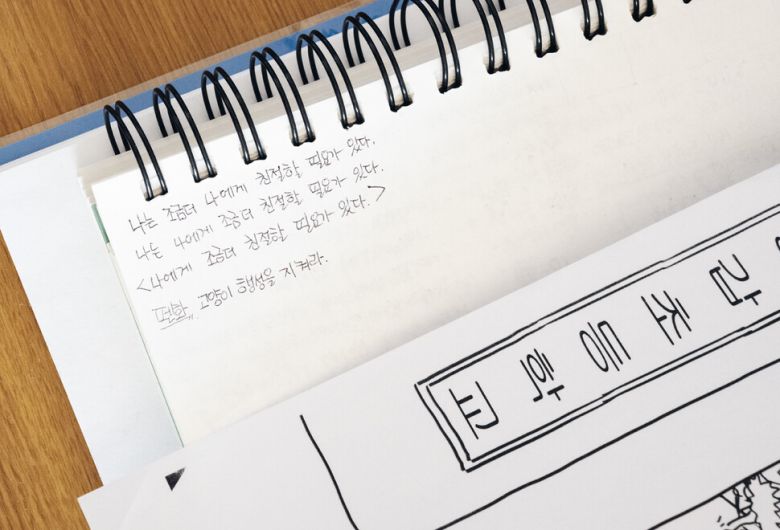 나는 조금더 나에게 친절할 필요가 있다.
나는 나에게 조금더 친절할 필요가 있다.
<나에게 조금더 친절할 필요가 있다.>
고양이 행성을 지켜라.